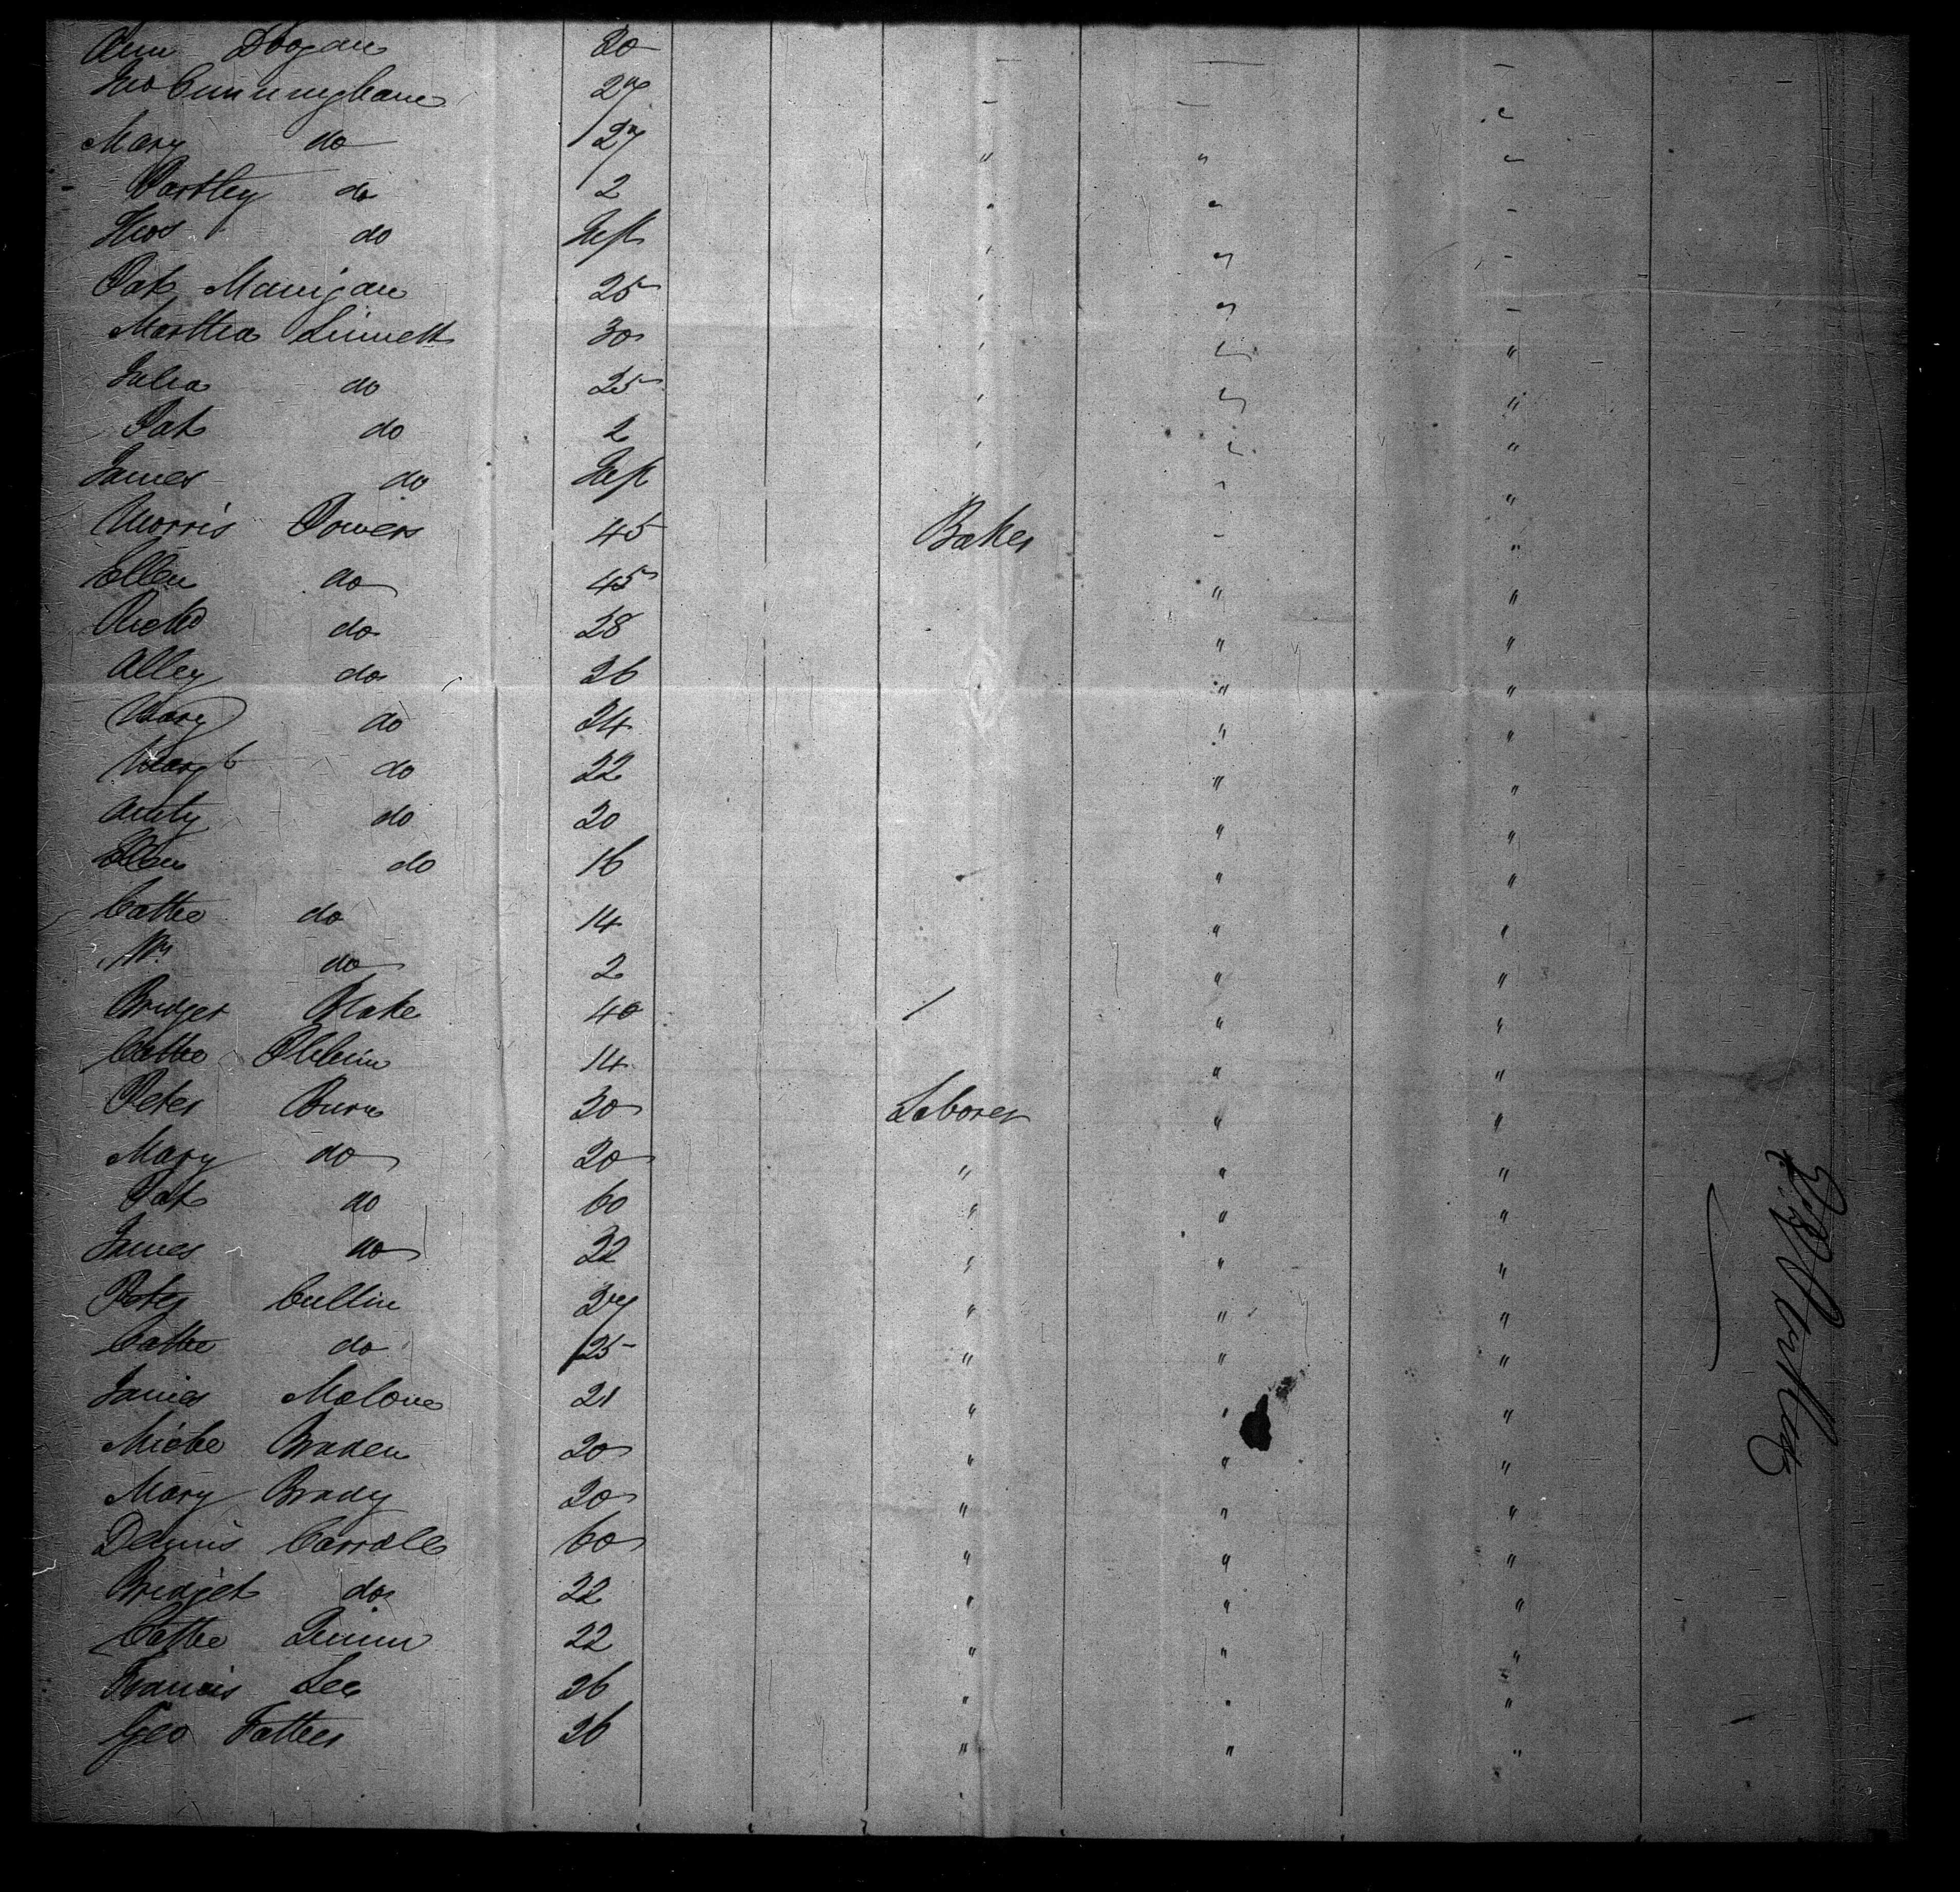 Ann Doogan 20 - — -
Jno Cunningham 27 - - "
Mary do 27 " " "
Bartley do 2 " " -
Thos do Inft " " -
Pat Manigan 25 " " -
Martha Sinnett 30 " " "
Julia do 25 " " "
Pat do 2 " " "
James do Inft " "
Morris Powers 45 Baker - "
Ellen do 45 " "
Richd do 28 " "
Alley do 26 " "
Mary do 24 " "
Margt do 22 " "
do 20 " "
Ellen do 16 " "
Cathe do 14 " "
Wm do 2 " "
Bridget Blake 40 / " "
Cathe 14 " "
Peter Burn 30 Laborer " "
Mary do 20 " " "
Pat do 60 " " "
James do 22 " " "
Peter Cullin 27 " " "
Cathe do 25 " " "
James Malone 21 " " "
Miche Braden 20 " " "
Mary Brady 20 " " "
Dennis Carroll 60 " " "
Bridget do 22 " " "
Cathe Quinn 22 " " "
Francis Lee 26 " " "
Geo Fathers 26 " " "